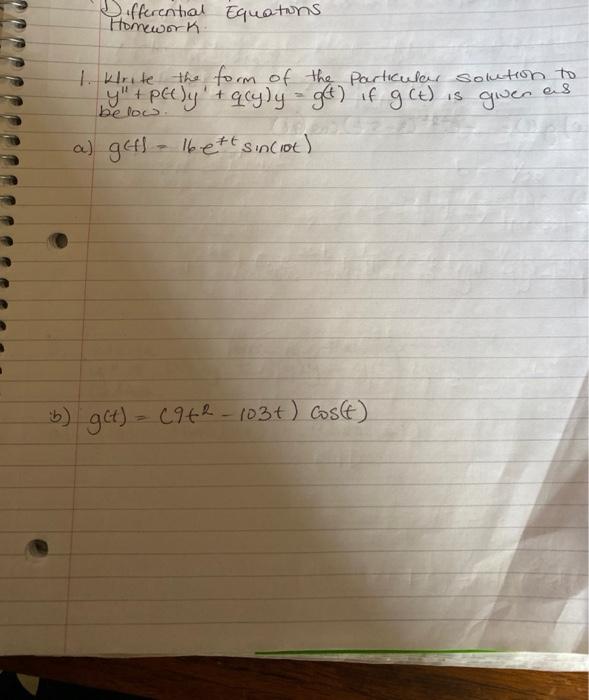 Differential Equations
Homework.
1. Write the form of the Particular solution to
y" + p(t)y' + q(y)y = g(t) if g(t) is given as
below.
a) g(t) = 16e^{7t} sin(10t)
b) g(t) = (9t² - 103t) Cos(t)